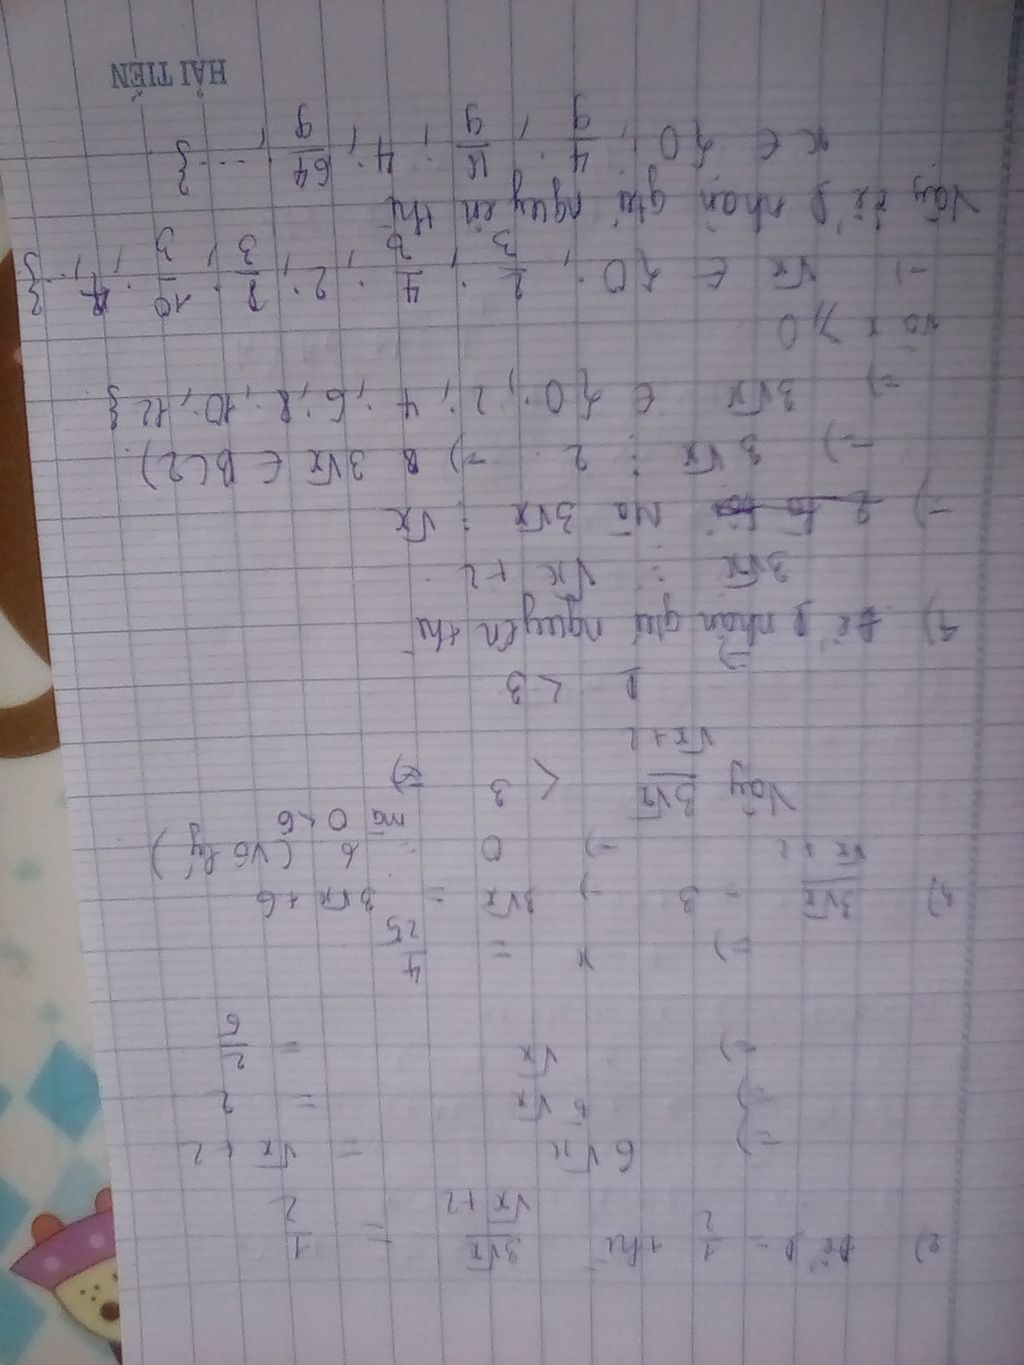 c) Để P = 1/2 thì 3√x/(√x+2) = 1/2
=) 6√x = √x + 2
=) 5√x = 2
=) √x = 2/5
=) x = 4/25
3√x/(√x+2) = 3 =) 3√x = 3√x + 6
=) 0 = 6 (vô lý)
mà 0 < 6
Vậy 3√x/(√x+2) < 3 =)
P < 3
Để P nhận giá nguyên thì
3√x ⋮ √x + 2
=) Mà 3√x ⋮ √x
=) 3√x ⋮ 2 =) 3√x ∈ B(2)
=) 3√x ∈ {0; 2; 4; 6; 8; 10; 12}
x ⩾ 0
=) √x ∈ {0; 2/3; 4/3; 2; 8/3; 10/3; 4; ...}
Vậy để P nhận giá nguyên thì
x ∈ {0; 4/9; 16/9; 4; 64/9; ...}
HẢI TIẾN